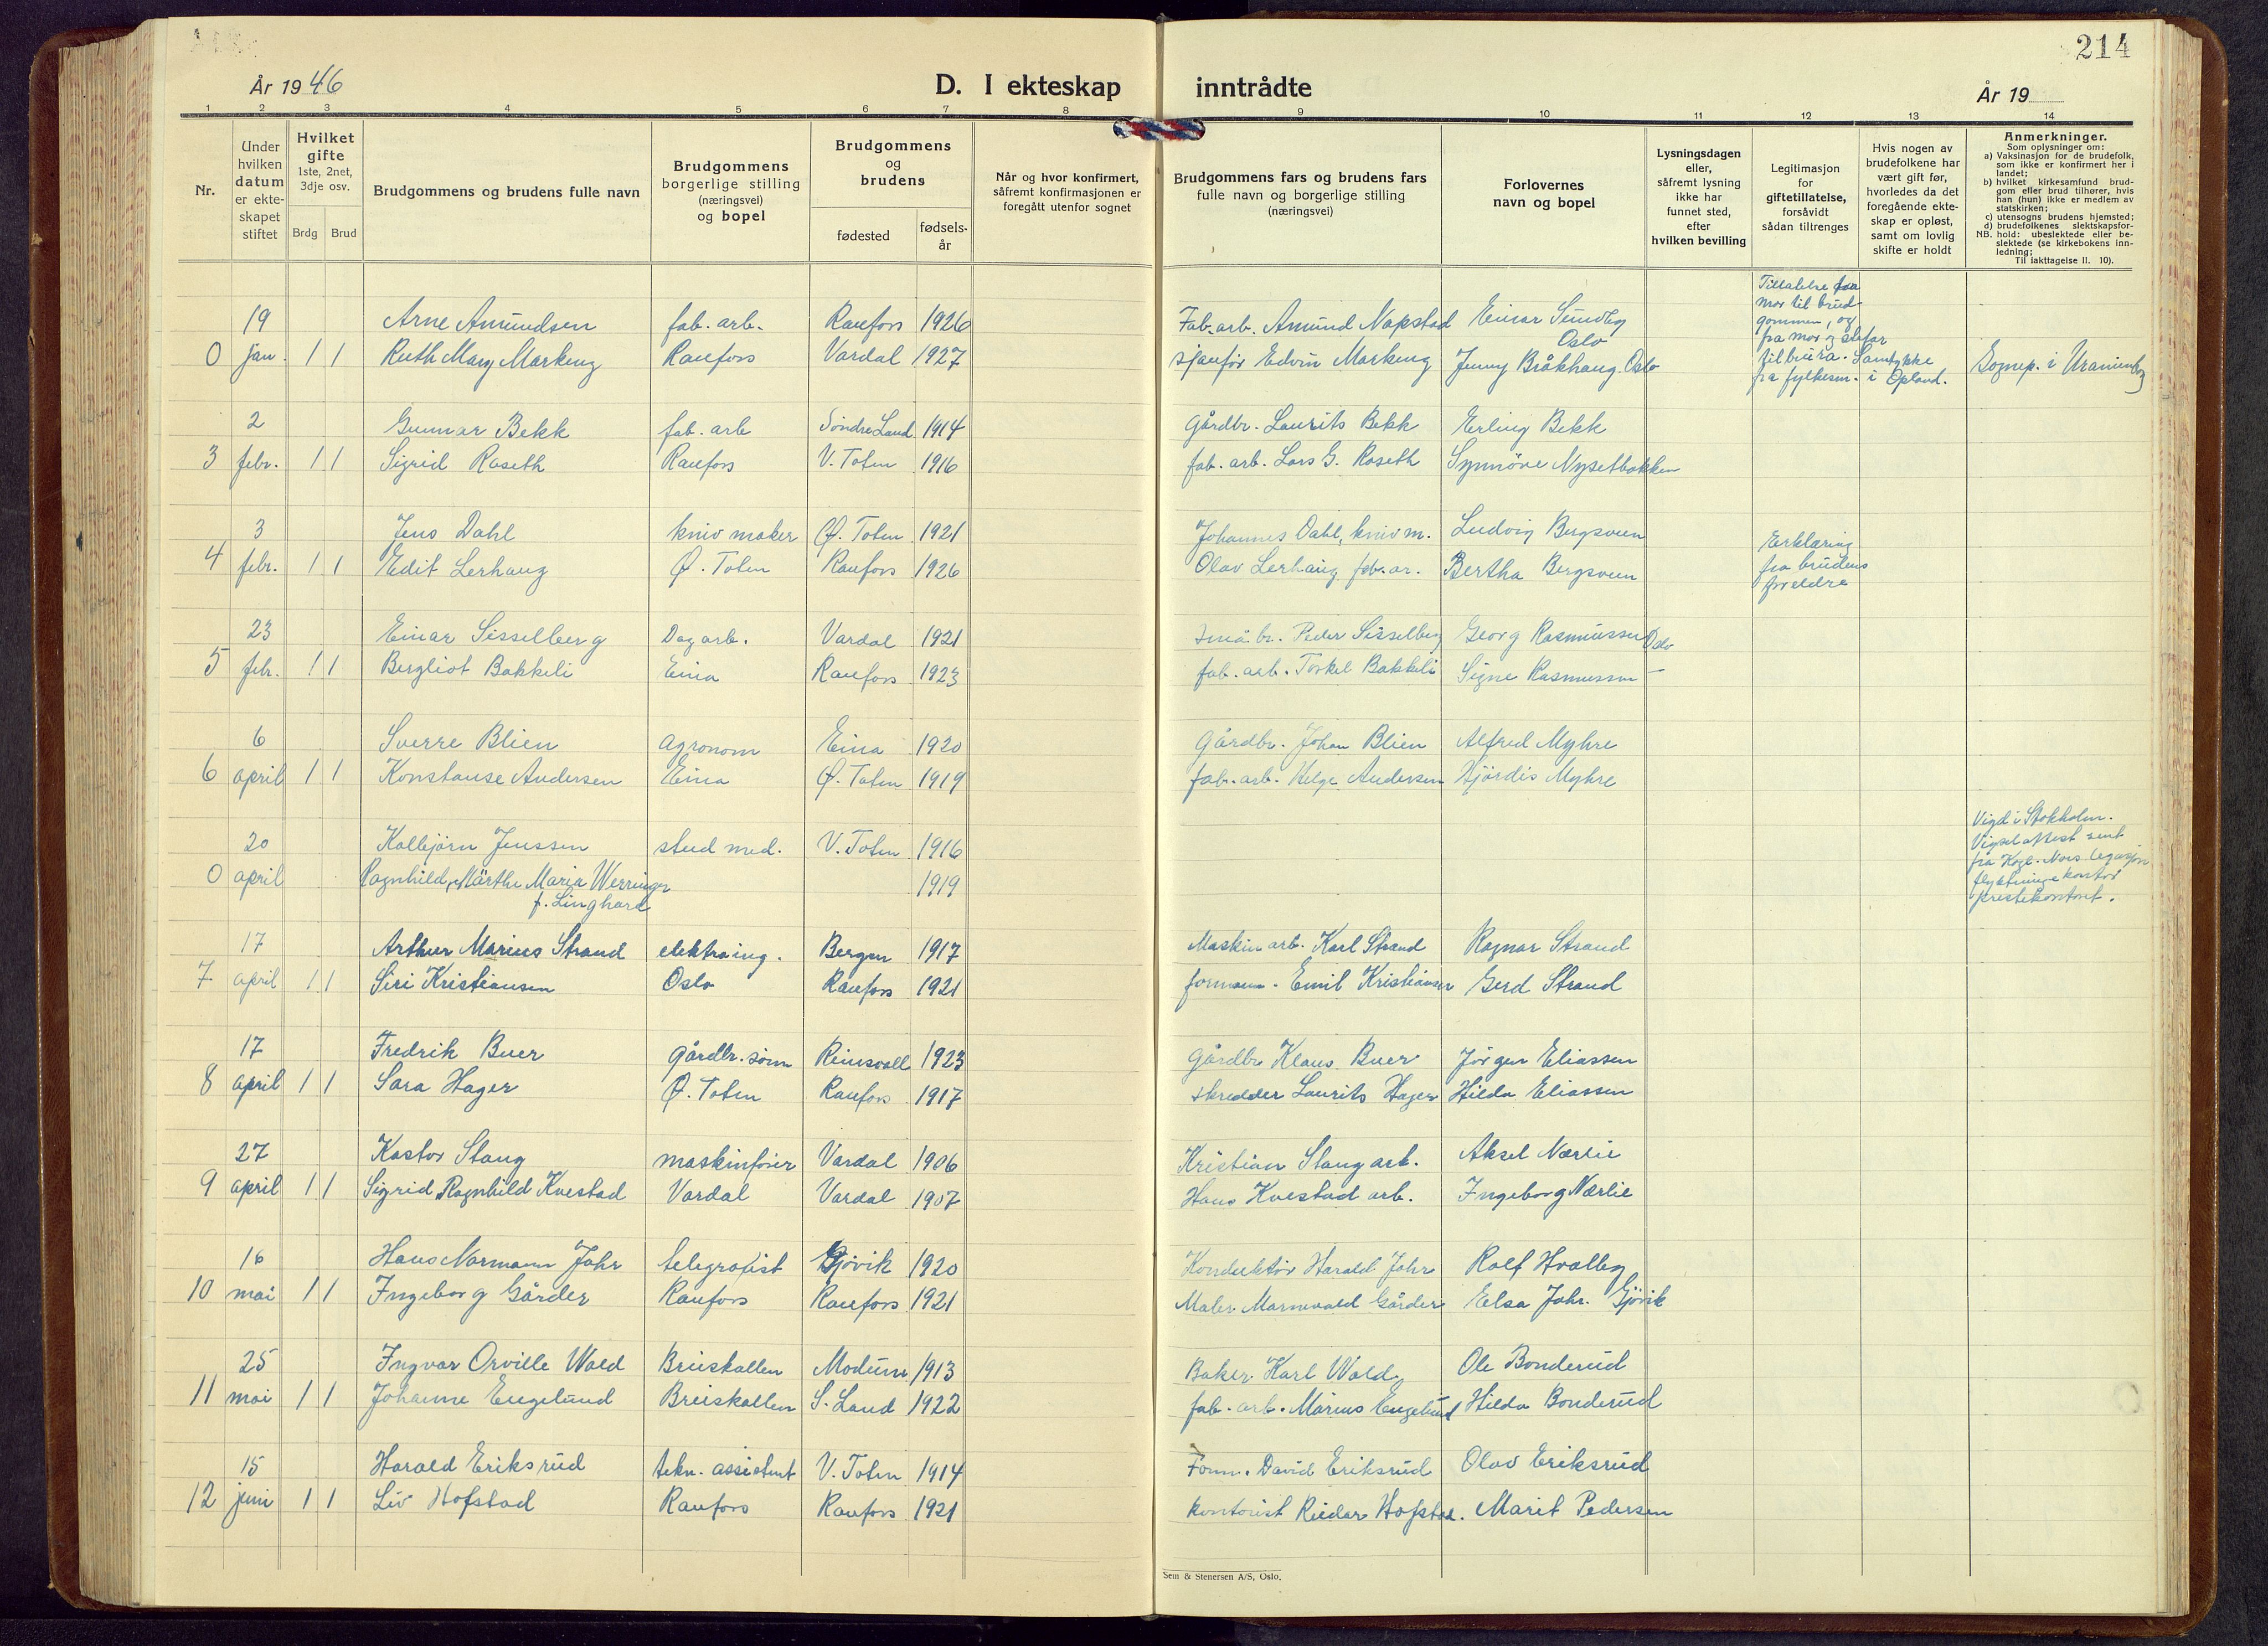 214
År 1946
D. I ekteskap inntrådte
År 19
1 2 3 4 5 6 7 8 9 10 11 12 13 14
Nr.
Under hvilken datum er ekteskapet stiftet
Hvilket gifte 1ste, 2net, 3dje osv.
Brdg Brud
Brudgommens og brudens fulle navn
Brudgommens borgerlige stilling (næringsvei) og bopel
Brudgommens og brudens
fødested
fødselsår
Når og hvor konfirmert, såfremt konfirmasjonen er foregått utenfor sognet
Brudgommens fars og brudens fars fulle navn og borgerlige stilling (næringsvei)
Forlovernes navn og bopel
Lysningsdagen eller, såfremt lysning ikke har funnet sted, efter hvilken bevilling
Legitimasjon for giftetillatelse, forsåvidt sådan tiltrenges
Hvis nogen av brudefolkene har vært gift før, hvorledes da det foregående ekteskap er opløst, samt om lovlig skifte er holdt
Anmerkninger.
Som oplysninger om:
a) Vaksinasjon for de brudefolk, som ikke er konfirmert her i landet;
b) hvilket kirkesamfund brudgom eller brud tilhører, hvis han (hun) ikke er medlem av statskirken;
c) utensogns brudens hjemsted;
d) brudefolkenes slektskapsforhold: ubeslektede eller beslektede (se kirkebokens innledning;
NB.
Til iakttagelse II. 10).
19 Arne Amundsen fab. arb. Raufoss 1926 Fab. arb. Amund Napstad Einar Sundby Oslo
0 jan. 1 1 Ruth Mary Markeng Raufoss Vardal 1927 sjaufør Edvin Markeng Jenny Bråkhaug Oslo
Tillatelse fra
mor til brud-
gommen, og
fra mor og stefar
til brura. Samtykke
fra fylkesm. i Opland.
Sognep. i Uranienborg
2 Gunnar Bekk fab. arb Søndre Land 1914 Gårdbr. Laurits Bekk Erling Bekk
3 febr. 1 1 Sigrid Roseth Raufoss V. Toten 1916 fab. arb. Lars G. Roseth Synnöve Nysetbakken
3 Jens Dahl kniv maker Ø. Toten 1921 Johannes Dahl, knivm. Ludvig Bergsveen
4 febr. 1 1 Edit Lerhaug Ø. Toten Raufoss 1926 Olav Lerhaug, fab. ar. Bertha Bergsveen
Erklæring
fra brudens
foreldre
23 Einar Sisselberg Dagarb. Vardal 1921 Småbr. Peder Sisselberg Georg Rasmussen Oslo
5 febr. 1 1 Bergliot Bakkeli Eina Raufoss 1923 fab. arb. Torkel Bakkeli Signe Rasmussen —
6 Sverre Blien agronom Eina 1920 Gårdbr. Johan Blien Alfred Myhre
6 april 1 1 Konstanse Andersen Eina Ø. Toten 1919 fab. arb. Helge Andersen Hjördis Myhre
20 Kolbjörn Jenssen stud med. V. Toten 1916
0 april Ragnhild, Märtha Maria Werringer 1919
f. Linghard
Vigd i Stokholm.
Vigselattest sent
fra Kogl. Nors legasjon
flyktningekontor
prestekontoret.
17 Arthur Marius Strand elektroing. Bergen 1917 Maskinarb. Karl Strand Ragnar Strand
7 april 1 1 Siri Kristiansen Oslo Raufoss 1921 formann. Emil Kristiansen Gerd Strand
17 Fredrik Buer gårdbr. sønn Reinsvoll 1923 Gårdbr Klaus Buer Jörgen Eliassen
8 april 1 1 Sara Hager Ø. Toten Raufoss 1917 skredder Laurits Hager Hilda Eliassen
27 Kastor Stang maskinfører Vardal 1906 Kristian Stang arb. Aksel Nærlie
9 april 1 1 Sigrid Ragnhild Kvestad Vardal Vardal 1907 Hans Kvestad arb. Ingeborg Nærlie
16 Hans Normann Johr telegrafist Gjövik 1920 Konduktör Harald Johr Rolf Hvalby
10 mai 1 1 Ingeborg Gårder Raufoss Raufoss 1921 Maler Gårder Elsa Johr. Gjövik
25 Ingvar Orville Wold Breiskallen Modum 1913 Baker Karl Wold Ole Bonderud
11 mai 1 1 Johanne Engelund Breiskallen S. Land 1922 fab. arb. Marius Engelund Hilda Bonderud
15 Harald Eriksrud tekn. assistent V. Toten 1914 Form. David Eriksrud Olav Eriksrud
12 juni 1 1 Liv Hofstad Raufoss Raufoss 1921 kontorist Reidar Hofstad. Marit Pedersen
Sem & Stenersen A/S, Oslo.